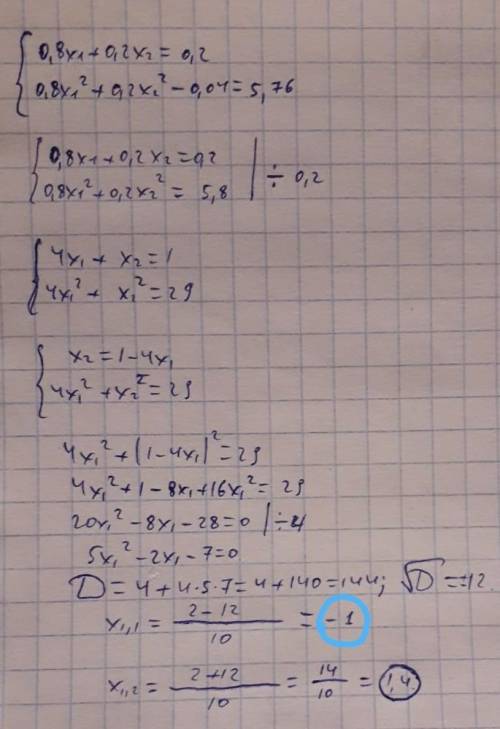 0,8x₁+0,2x₂=0,2
0,8x₁²+0,2x₂²-0,04=5,76
0,8x₁+0,2x₂=0,2
0,8x₁²+0,2x₂²= 5,8 | ÷ 0,2
4x₁+ x₂=1
4x₁²+ x₁²=29
x₂=1-4x₁
4x₁²+x₂²=29
4x₁²+(1-4x₁)²=29
4x₁²+1-8x₁+16x₁²=29
20x₁²-8x₁-28=0 |÷4
5x₁²-2x₁-7=0
D=4+4·5·7=4+140=144; √D=12.
x₁,₁= (2-12)/10 = -1
x₁,₂= (2+12)/10 = 14/10 = 1,4